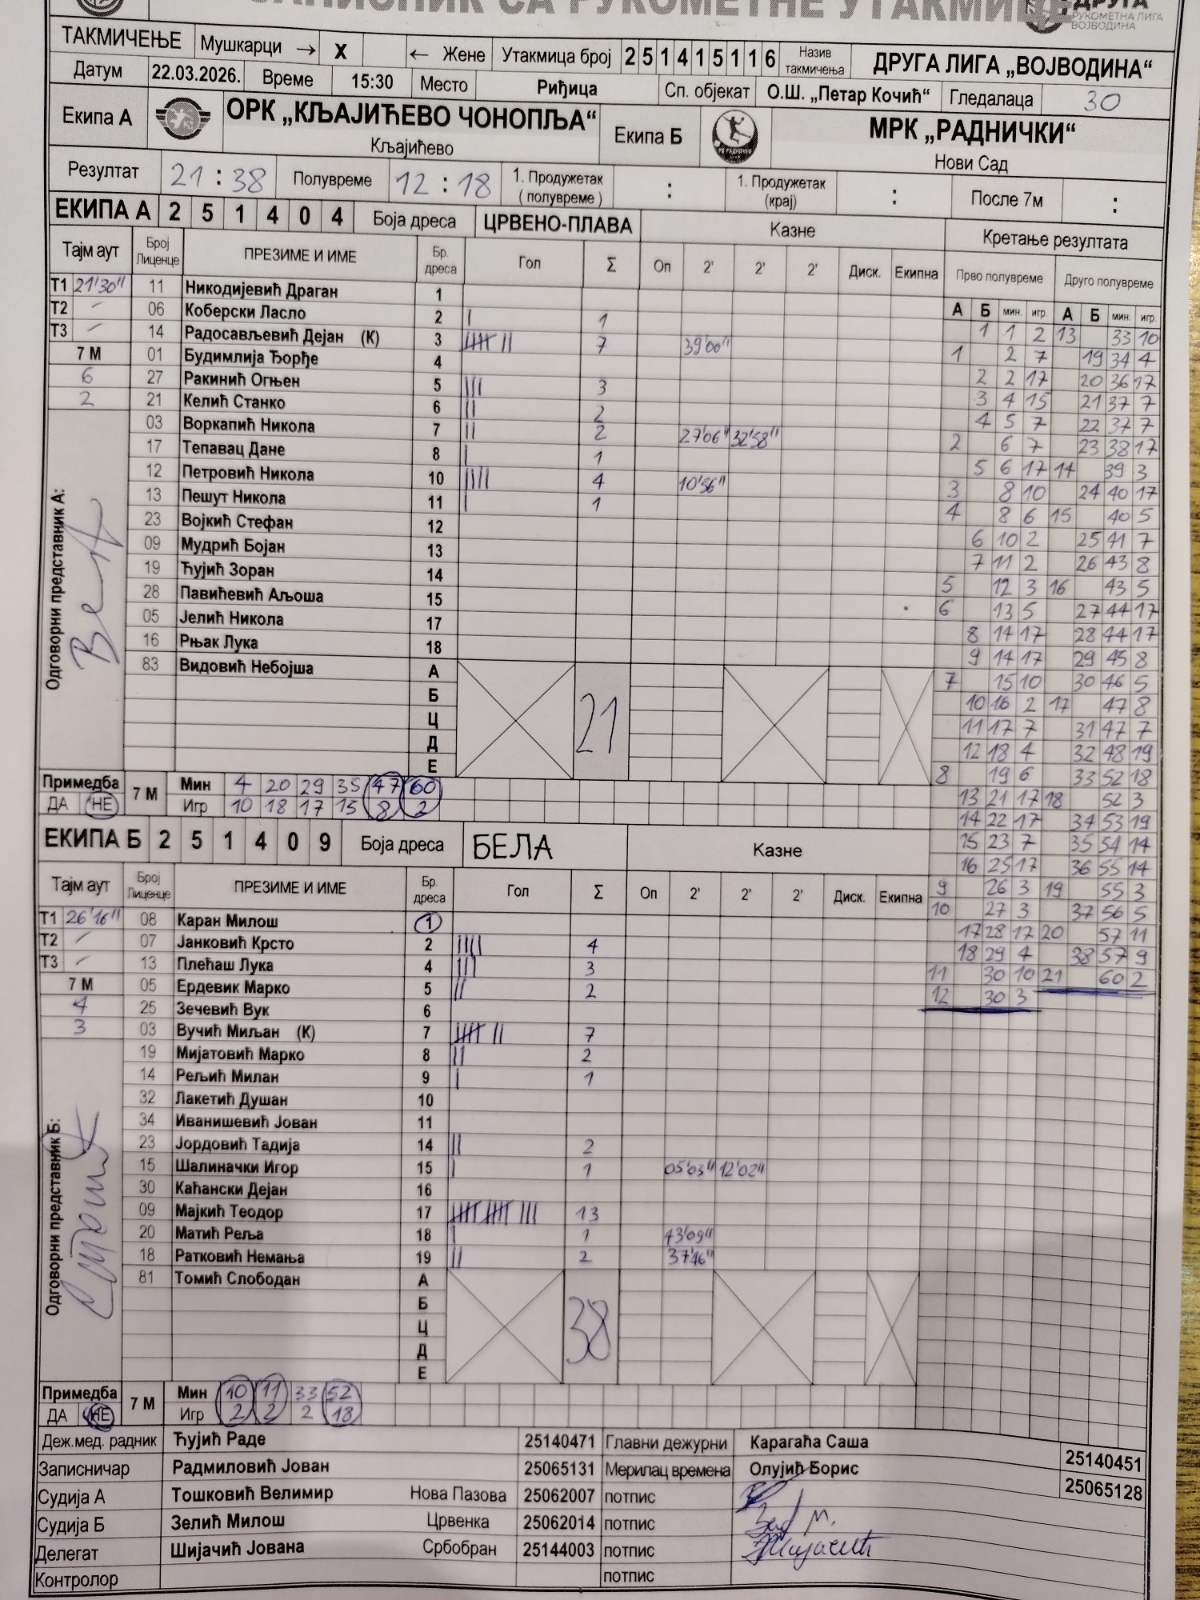 ЗАПИСНИК СА РУКОМЕТНЕ УТАКМИЦЕ
ДРУГА
РУКОМЕТНА ЛИГА
ВОЈВОДИНА
ТАКМИЧЕЊЕ Мушкарци → X ← Жене Утакмица број 2 5 1 4 1 5 1 1 6 Назив такмичења ДРУГА ЛИГА „ВОЈВОДИНА“
Датум 22.03.2026. Време 15:30 Место Риђица Сп. објекат О.Ш. „Петар Кочић“ Гледалаца 30
Екипа А ОРК „КЉАЈИЋЕВО ЧОНОПЉА“ Кљајићево Екипа Б МРК „РАДНИЧКИ“ Нови Сад
Резултат 21 : 38 Полувреме 12 : 18 1. Продужетак (полувреме) : 1. Продужетак (крај) : После 7м :
ЕКИПА А 2 5 1 4 0 4 Боја дреса ЦРВЕНО-ПЛАВА Казне Кретање резултата
Тајм аут Број Лиценце ПРЕЗИМЕ И ИМЕ Бр. дреса Гол Σ Оп 2' 2' 2' Диск. Екипна Прво полувреме Друго полувреме
А Б мин. игр. А Б мин. игр.
Т1 21'30" 11 Никодијевић Драган 1
Т2 – 06 Коберски Ласло 2 | 1
Т3 – 14 Радосављевић Дејан (К) 3 |||| || 7 39'00"
7 М 01 Будимлија Ђорђе 4
6 27 Ракинић Огњен 5 ||| 3
2 21 Келић Станко 6 || 2
03 Воркапић Никола 7 || 2 27'06" 32'58"
17 Тепавац Дане 8 | 1
12 Петровић Никола 10 |||| 4 10'56"
13 Пешут Никола 11 | 1
23 Војкић Стефан 12
09 Мудрић Бојан 13
19 Ћујић Зоран 14
28 Павићевић Аљоша 15
05 Јелић Никола 17
16 Рњак Лука 18
83 Видовић Небојша А
Б
Ц 21
Д
Е
Одговорни представник А:
1 1 2 13 33 10
1 2 7 19 34 4
2 2 17 20 36 17
3 4 15 21 37 7
4 5 7 22 37 7
2 6 7 23 38 17
5 6 17 14 39 3
3 8 10 24 40 17
4 8 6 15 40 5
6 10 2 25 41 7
7 11 2 26 43 8
5 12 3 16 43 5
6 13 5 27 44 17
8 14 17 28 44 17
9 14 17 29 45 8
7 15 10 30 46 5
10 16 2 17 47 8
11 17 7 31 47 7
12 18 4 32 48 19
8 19 6 33 52 18
13 21 17 18 52 3
14 22 17 34 53 19
15 23 7 35 54 14
16 25 17 36 55 14
9 26 3 19 55 3
10 27 3 37 56 5
17 28 17 20 57 11
18 29 4 38 57 9
11 30 10 21 60 2
12 30 3
Примедба 7 М Мин 4 20 29 35 47 60
ДА НЕ Игр 10 18 17 15 8 2
ЕКИПА Б 2 5 1 4 0 9 Боја дреса БЕЛА Казне
Тајм аут Број Лиценце ПРЕЗИМЕ И ИМЕ Бр. дреса Гол Σ Оп 2' 2' 2' Диск. Екипна
Т1 26'16" 08 Каран Милош 1
Т2 – 07 Јанковић Крсто 2 |||| 4
Т3 – 13 Плећаш Лука 4 ||| 3
7 М 05 Ердевик Марко 5 || 2
4 25 Зечевић Вук 6
3 03 Вучић Миљан (К) 7 |||| || 7
19 Мијатовић Марко 8 || 2
14 Рељић Милан 9 | 1
32 Лакетић Душан 10
34 Иванишевић Јован 11
23 Јордовић Тадија 14 || 2
15 Шалиначки Игор 15 | 1 05'03" 12'02"
30 Каћански Дејан 16
09 Мајкић Теодор 17 |||| |||| ||| 13
20 Матић Реља 18 | 1 43'09"
18 Ратковић Немања 19 || 2 37'46"
81 Томић Слободан А
Б
Ц 38
Д
Е
Одговорни представник Б:
Примедба 7 М Мин 10 11 33 52
ДА НЕ Игр 2 2 2 18
Деж.мед. радник Ћујић Раде 25140471 Главни дежурни Карагаћа Саша 25140451
Записничар Радмиловић Јован 25065131 Мерилац времена Олујић Борис 25065128
Судија А Тошковић Велимир Нова Пазова 25062007 потпис
Судија Б Зелић Милош Црвенка 25062014 потпис
Делегат Шијачић Јована Србобран 25144003 потпис
Контролор потпис